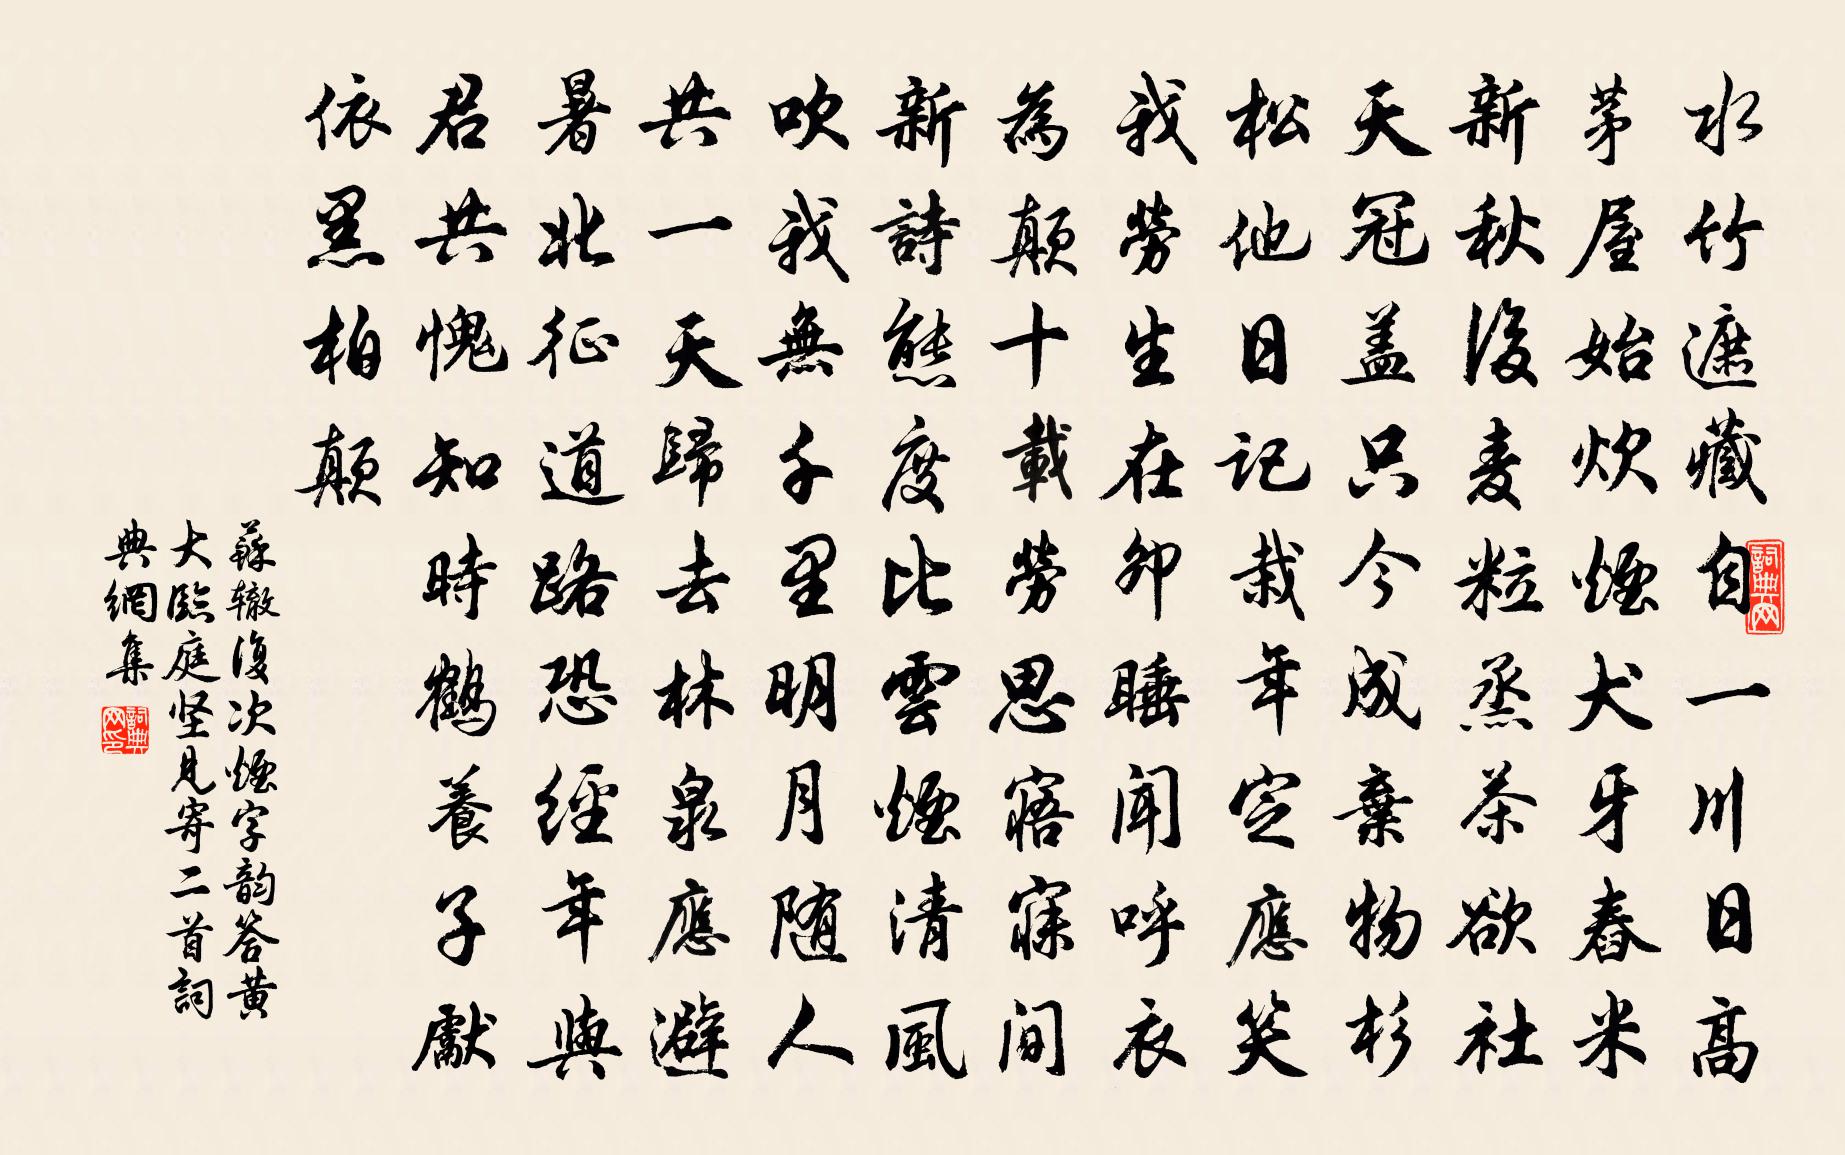 水竹遮藏自一川日高
茅屋始炊煙犬牙舂米
新秋後麦粒烝茶欲社
天冠盖只今成棄物杉
松他日記栽年定應笑
我勞生在卯睡聞呼衣
為顛十載勞思寤寐間
新詩態度比雲煙清風
吹我無千里明月随人
共一天歸去林泉應避
暑北征道路恐經年與
君共愧知時鶴養子獻
依黑柏顛
蘇辙復次煙字韵答黄
大臨庭坚見寄二首詞
典網集
詞典网
詞典网印